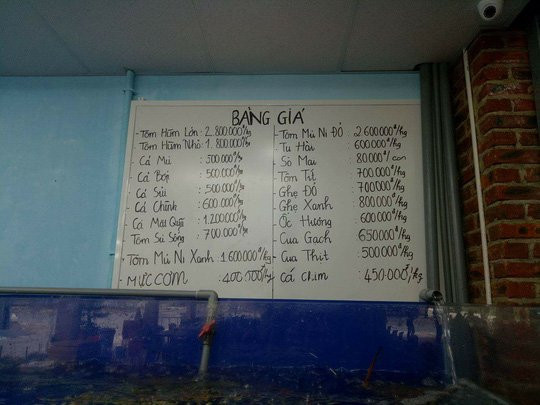 BẢNG GIÁ
- Tôm Hùm Lớn : 2.800.000đ/kg
Tôm Hùm Nhỏ : 1.800.000đ/kg
Cá Mú : 500.000đ/kg
Cá Bớp : 500.000đ/kg
Cá Sủ : 500.000đ/kg
Cá Chình : 600.000đ/kg
Cá Mặt Quỷ : 1.200.000đ/kg
Tôm Sú Sống : 700.000đ/kg
Tôm Mú Ni Xanh : 1.600.000đ/kg
- MỰC CƠM : 400.000đ/kg
- Tôm Mú Ni ĐỎ : 2.600000đ/kg
Tu Hài : 600000đ/kg
Sò Mai : 80000đ/con
Tôm Tít : 700.000đ/kg
Ghẹ Đỏ : 700000đ/kg
Ghẹ Xanh : 800000đ/kg
Ốc Hương : 600000đ/kg
Cua Gạch : 650000đ/kg
Cua Thịt : 500000đ/kg
- Cá chim : 450.000đ/kg